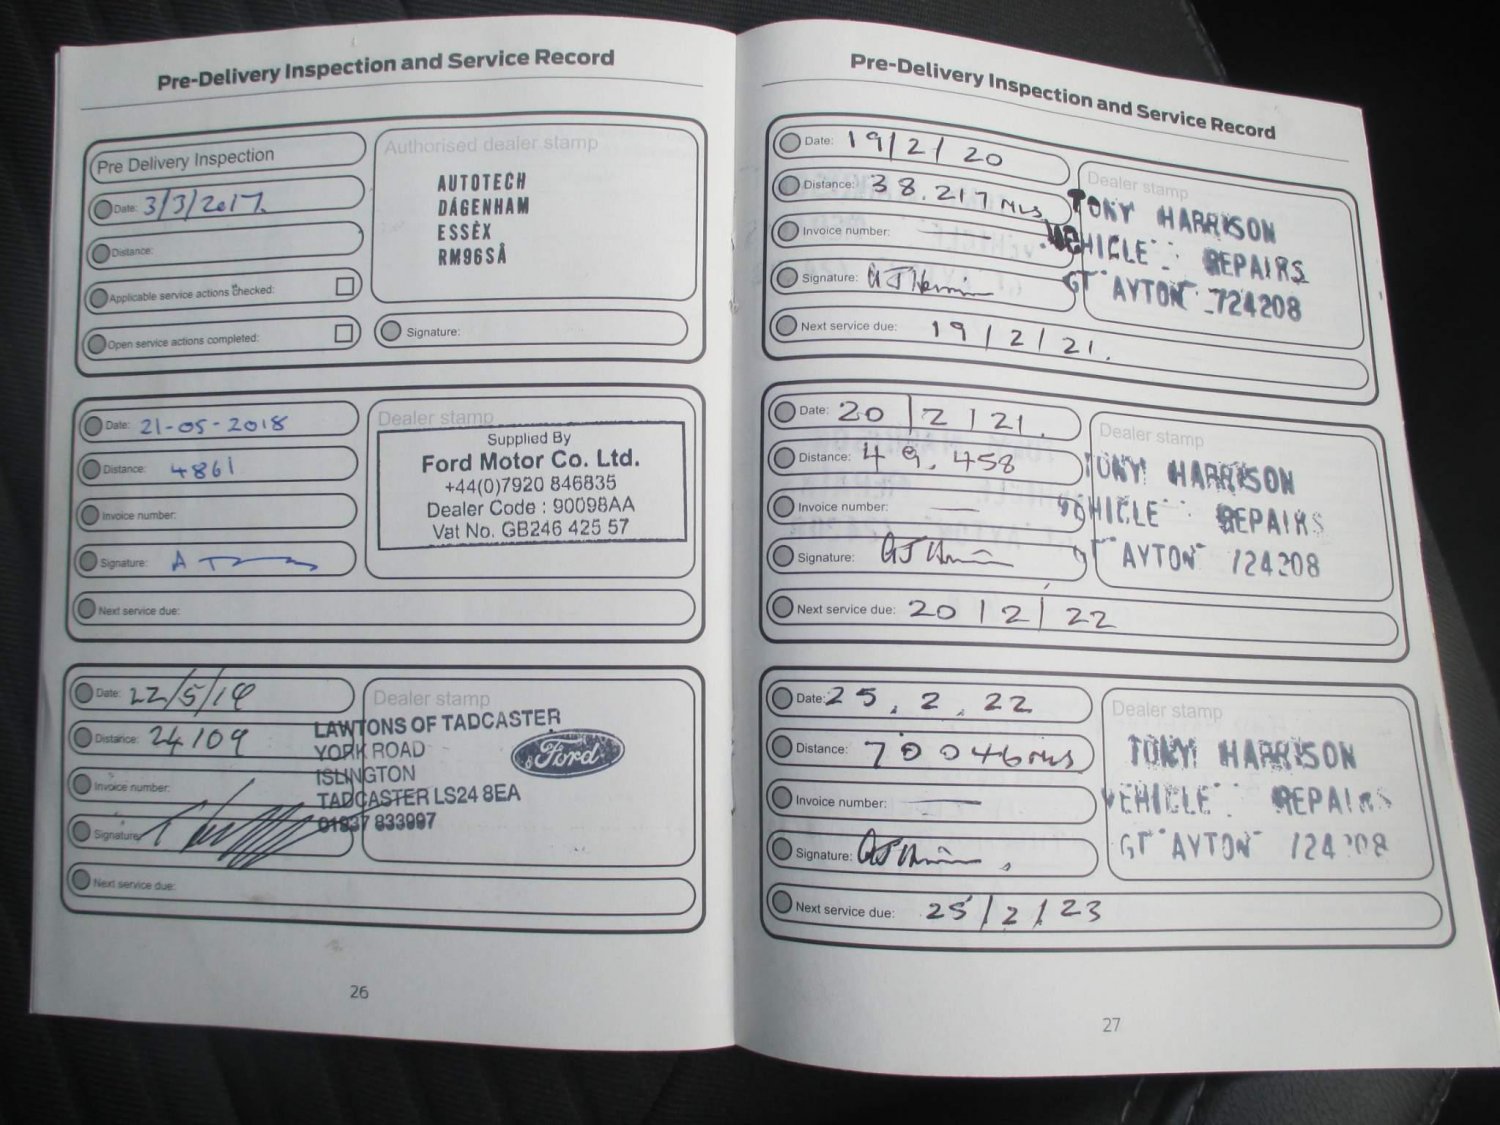 Pre-Delivery Inspection and Service Record
Pre Delivery Inspection
Date: 3/3/2017
Distance:
Applicable service actions checked:
Open service actions completed:
Authorised dealer stamp
AUTOTECH
DAGENHAM
ESSEX
RM96SA
Signature:
Date: 21-05-2018
Distance: 4861
Invoice number:
Signature:
Next service due:
Dealer stamp
Supplied By
Ford Motor Co. Ltd.
+44(0)7920 846835
Dealer Code : 90098AA
Vat No. GB246 425 57
Date: 22/5/19
Distance: 24109
Invoice number:
Signature:
Next service due:
Dealer stamp
LAWTONS OF TADCASTER
YORK ROAD
ISLINGTON
TADCASTER LS24 8EA
01937 833997
Ford
26
Pre-Delivery Inspection and Service Record
Date: 19/2/20
Distance: 38.217 MLS
Invoice number:
Signature:
Next service due: 19/2/21.
Dealer stamp
TONY HARRISON
VEHICLE REPAIRS
GT AYTON 724208
Date: 20/2/21.
Distance: 49.458
Invoice number: —
Signature:
Next service due: 20/2/22
Dealer stamp
TONY HARRISON
VEHICLE REPAIRS
GT AYTON 724208
Date: 25.2.22
Distance: 70046 MLS
Invoice number: —
Signature:
Next service due: 25/2/23
Dealer stamp
TONY HARRISON
VEHICLE REPAIRS
GT AYTON 724208
27